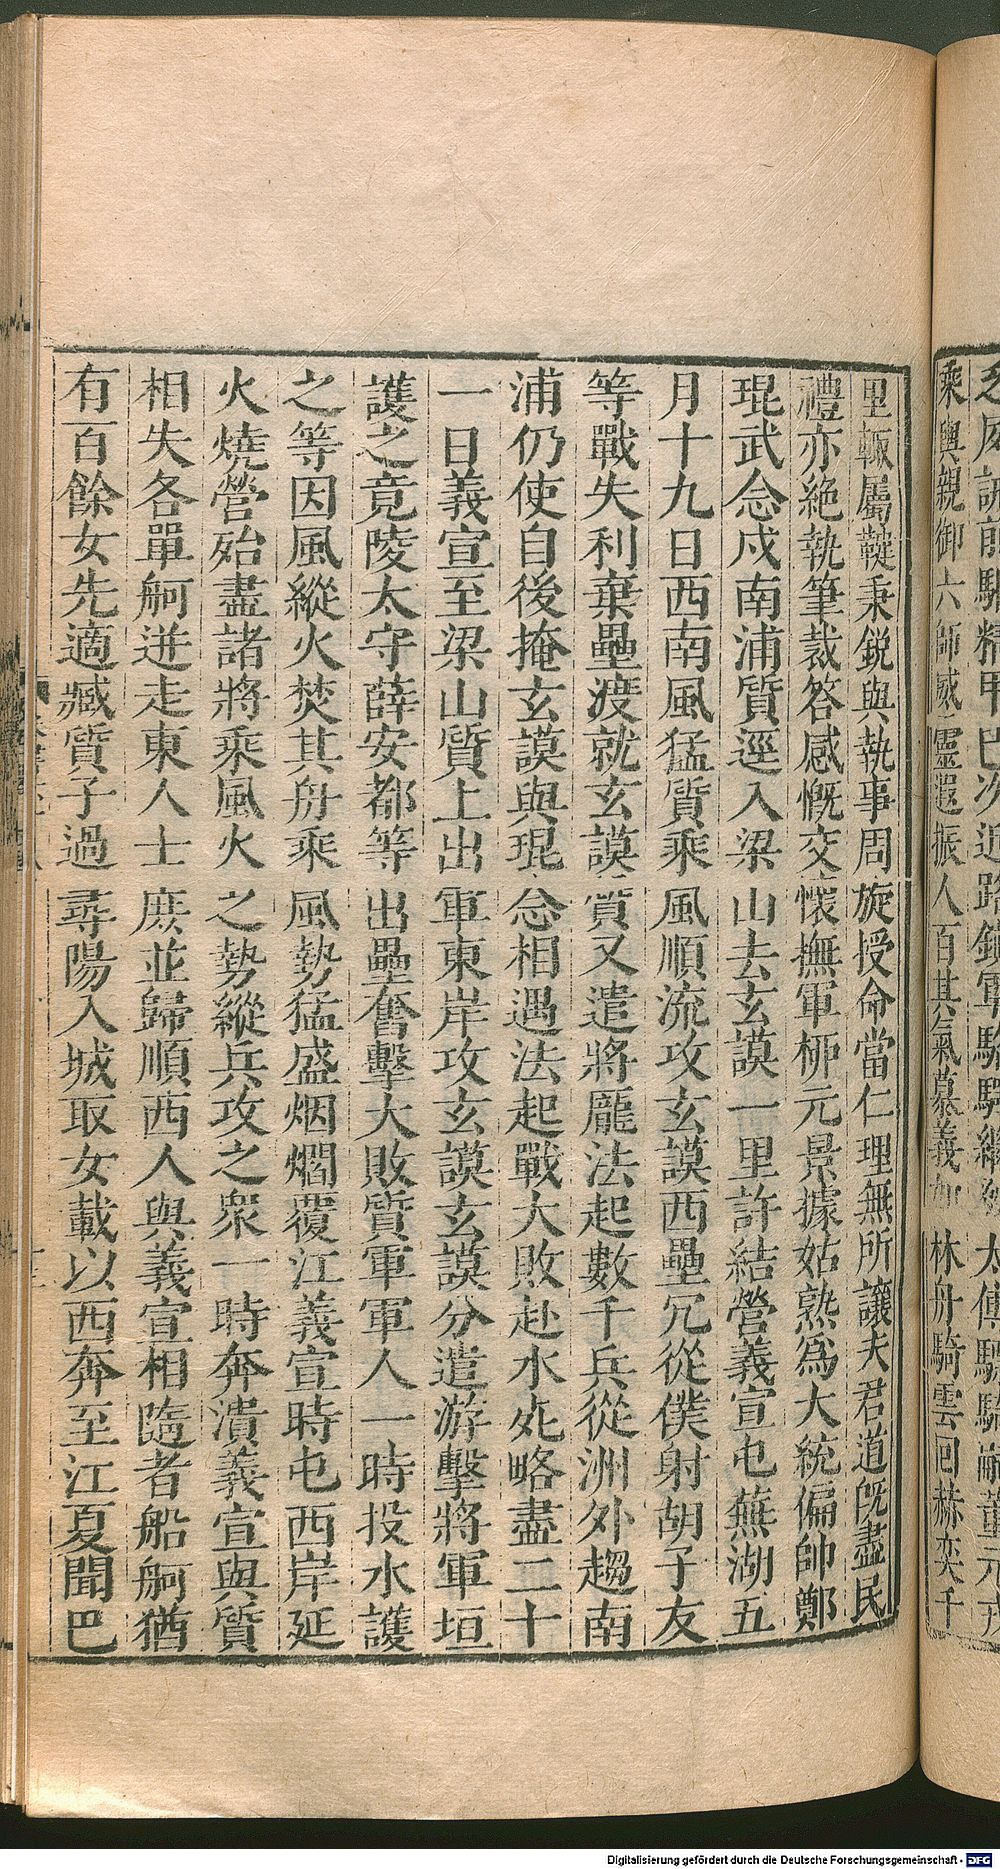 乘輿親御六師威靈遐振人百其氣慕義如林舟騎雲回赫奕千
里輒屬鞬秉銳與執事周旋授命當仁理無所讓夫君道旣盡民
禮亦絶執筆裁答感慨交懷撫軍栁元景據姑熟爲大統偏帥鄭
琨武念戍南浦質逕入梁山去玄謨一里許結營義宣屯蕪湖五
月十九日西南風猛質乘風順流攻玄謨西壘冗從僕射胡子友
等戰失利棄壘渡就玄謨質又遣將龐法起數千兵從洲外趨南
浦仍使自後掩玄謨與琨念相遇法起戰大敗赴水死略盡二十
一日義宣至梁山質上出軍東岸攻玄謨玄謨分遣游擊將軍垣
護之竟陵太守薛安都等出壘奮擊大敗質軍軍人一時投水護
之等因風縱火焚其舟乘風勢猛盛烟爓覆江義宣時屯西岸延
火燒營殆盡諸將乘風火之勢縱兵攻之衆一時奔潰義宣與質
相失各單舸迸走東人士庶並歸順西人與義宣相隨者船舸猶
有百餘女先適臧質子過尋陽入城取女載以西奔至江夏聞巴
Digitalisierung gefördert durch die Deutsche Forschungsgemeinschaft - DFG